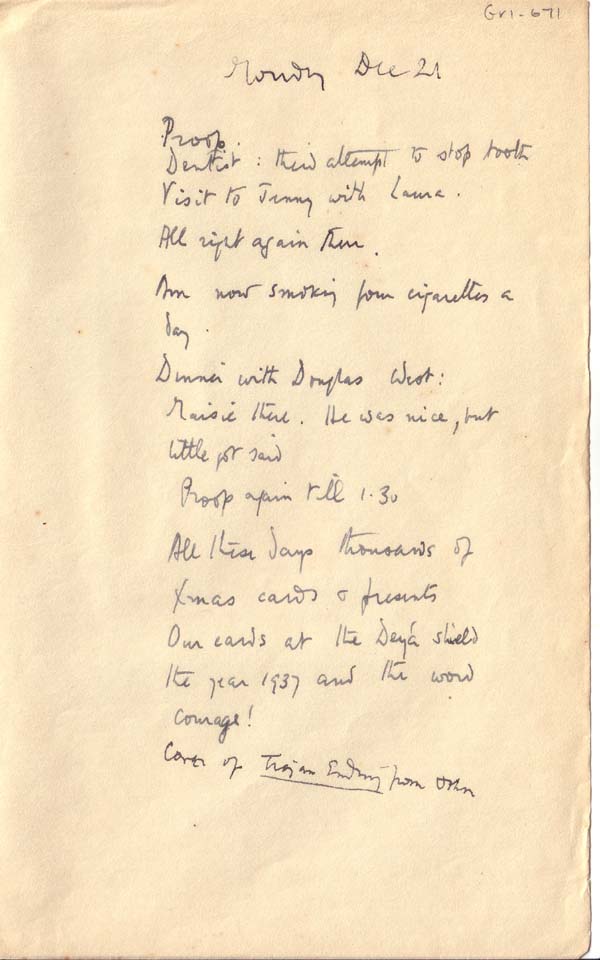 GV1-671
Monday Dec 21
Proofs.
Dentist : third attempt to stop tooth
Visit to Jenny with Laura.
All right again there.
Am now smoking four cigarettes a
day.
Dinner with Douglas West:
Maisie there. He was nice, but
little got said
Proofs again till 1.30
All these days thousands of
Xmas cards & presents
Our cards at the Deyá shield
the year 1937 and the word
courage!
Cover of Trojan Ending from John